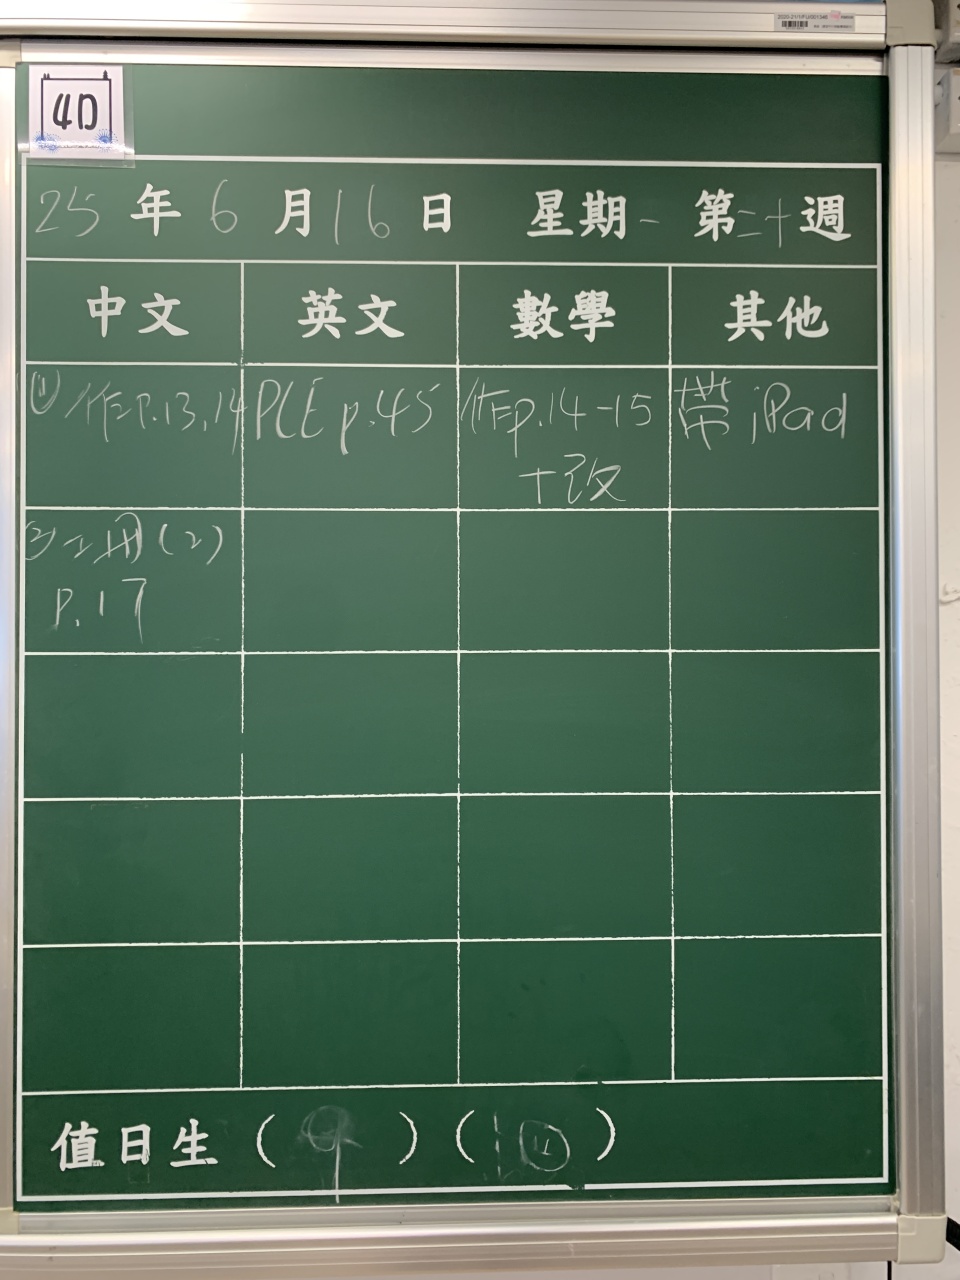 4D
25年6月16日 星期一 第二十週
中文 英文 數學 其他
① 作p.13,14 PCE p.45 作p.14-15 帶iPad
+改
② 工用(2)
p.17
值日生 ( 9 ) ( 10 )